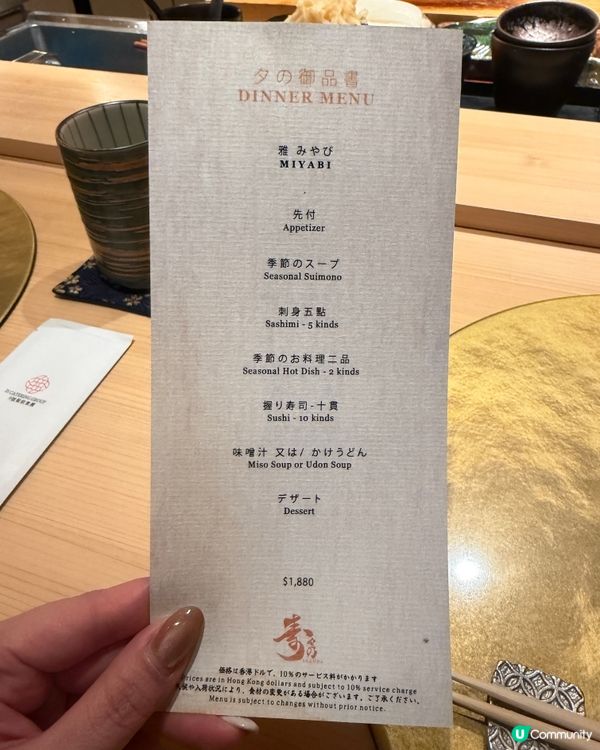 夕の御品書
DINNER MENU
雅 みやび
MIYABI
先付
Appetizer
季節のスープ
Seasonal Suimono
刺身五點
Sashimi - 5 kinds
季節のお料理二品
Seasonal Hot Dish - 2 kinds
握り寿司-十貫
Sushi - 10 kinds
味噌汁 又は/ かけうどん
Miso Soup or Udon Soup
デザート
Dessert
$1,880
価格は香港ドルで、10%のサービス料がかかります
prices are in Hong Kong dollars and subject to 10% service charge
や入荷状況により、食材の変更がある場合がございます。ご了承ください。
Menu is subject to changes without prior notice.
CATERING GROUP
U Community